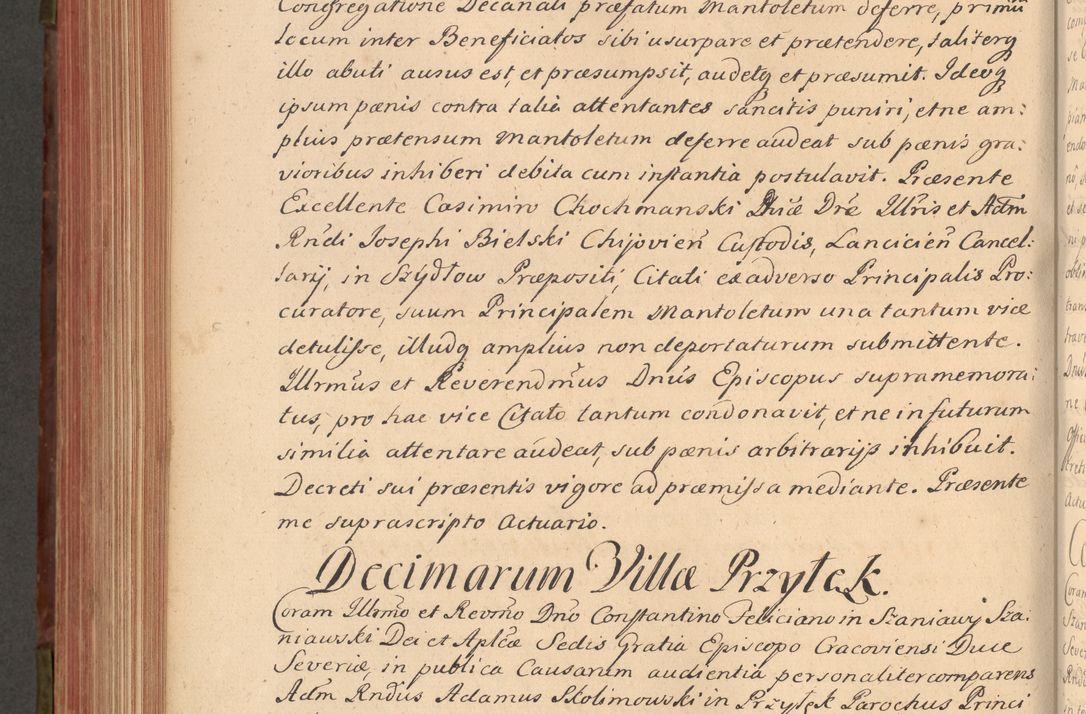 Congregatione Decanali præfatum Mantoletum deferre, primũ
locum inter Beneficiatos sibi usurpare et prætendere, taliterq
illo abuti ausus est, et præsumpsit, audetq et præsumit. Ideoq
ipsum pænis contra talia attentantes sancitis puniri, et ne am:
plius prætensum Mantoletum deferre audeat sub pænis gra:
vioribus inhiberi debita cum instantia postulavit. Præsente
Excellente Casimiro Chochmanski Dñe Illris et Adm
Rndi Josephi Bielski Chijovien Custodis, Lancicień Cancel:
larij, in Szÿdłow Præpositi, Citati ex adverso Principalis Pro:
curatore, suum Principalem Mantoletum una tantum vice
detulisse, illudq amplius non deportaturum submittente.
Illrmus et Reverendmus Dnus Episcopus supramemora:
tus, pro hac vice Citato tantum condonavit, et ne in futurum
similia attentare audeat, sub pænis arbitrarijs inhibuit.
Decreti sui præsentis vigore ad præmissa mediante. Præsente
me suprascripto Actuario.
Decimarum Villæ Przyłęk.
Coram Illrmo et Revrmo Dno Constantino Feliciano in Szaniawy Sza:
niawski Dei et Aplcæ Sedis Gratia Episcopo Cracoviensi Duce
Severiæ, in publica Causarum audientia personaliter comparens
Adm Rndus Adamus Skolimowski in Przyłęk Parochus Princi